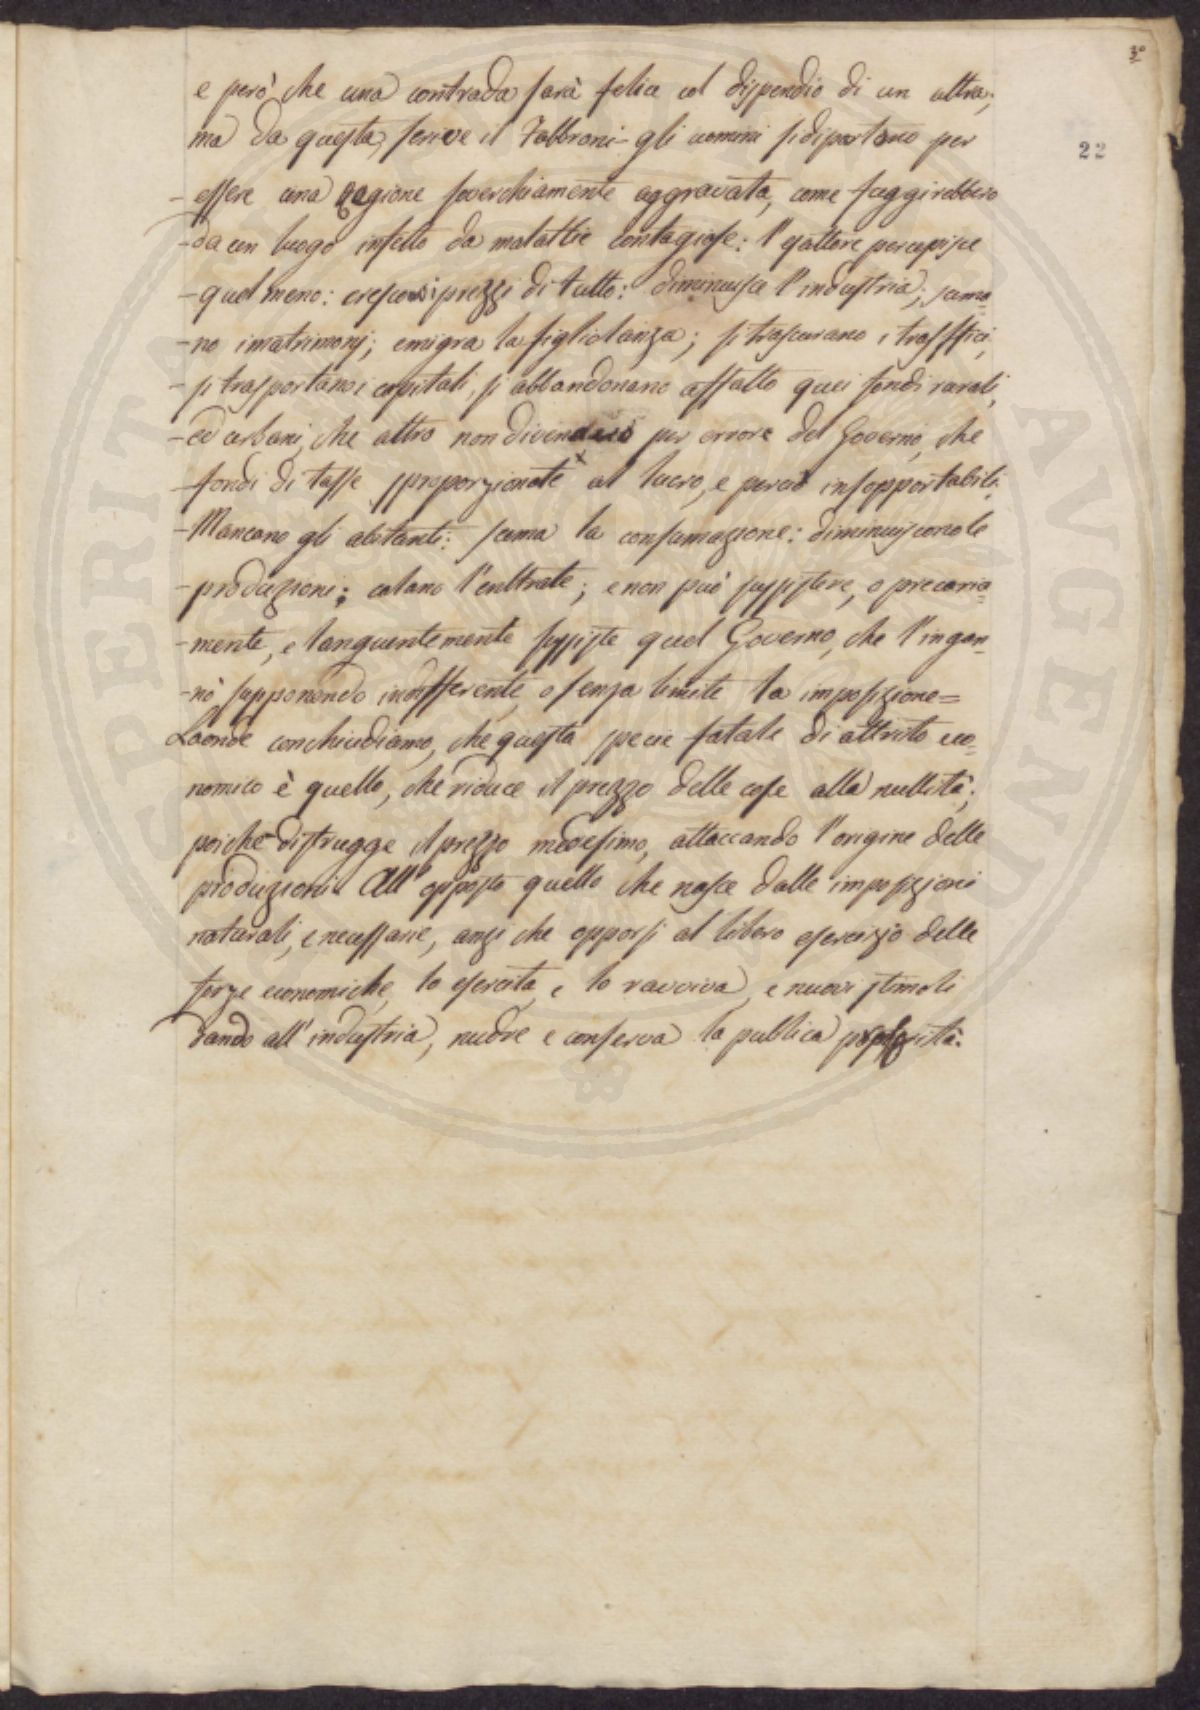 3º
22
e però che una contrada sarà felice col dispendio di un altra;
ma da questa, scrive il Fabbroni - gli uomini si dipartono per
- essere una ragione soverchiamente aggravata, come fuggirebbero
- da un luogo infetto da malattie contagiose: l'
- quel meno: crescono i prezzi di tutto: diminuisce l'industria; scema=
- no i matrimonj; emigra la figliolanza; si trascurano i traffici,
- si trasportano i capitali, si abbandonano affatto quei fondi rurali,
- ed urbani, che altro non per errore del Governo, che
- fondi di tasse sproporzionate al lucro, e perciò insopportabili.
- Mancano gli abitanti: scema la consumazione: diminuiscono le
- produzioni; calano l'entrate; e non può sussistere, o precaria=
- mente, e languentemente sussiste quel Governo, che l'ingan=
- nò supponendo indifferente, o senza limite la imposizione=
Laonde conchiudiamo, che questa specie fatale di attrito eco=
nomico è quello, che riduce il prezzo delle cose alla nullità;
poichè distrugge il prezzo medesimo, attaccando l'origine delle
produzioni. All'opposto quello che nasce dalle imposizioni
naturali, e necessarie, anzi che opporsi al libero esercizio delle
forze economiche, lo esercita, e lo ravviva, e nuovi stimoli
dando all'industria, nudre e conserva la publica prosperità.